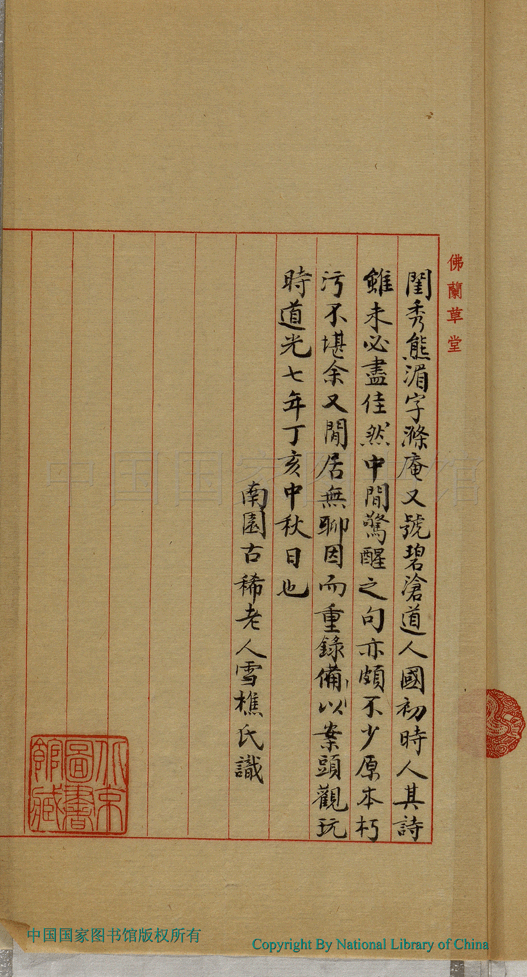 佛蘭草堂
閨秀熊湄字滌庵又號碧滄道人國初時人其詩
雖未必盡佳然中間驚醒之句亦頗不少原本朽
污不堪余又閒居無聊因而重錄備以案頭觀玩
時道光七年丁亥中秋日也
南園古稀老人雪樵氏識
北京圖書館藏
中国国家图书馆
中国国家图书馆版权所有
Copyright By National Library of China